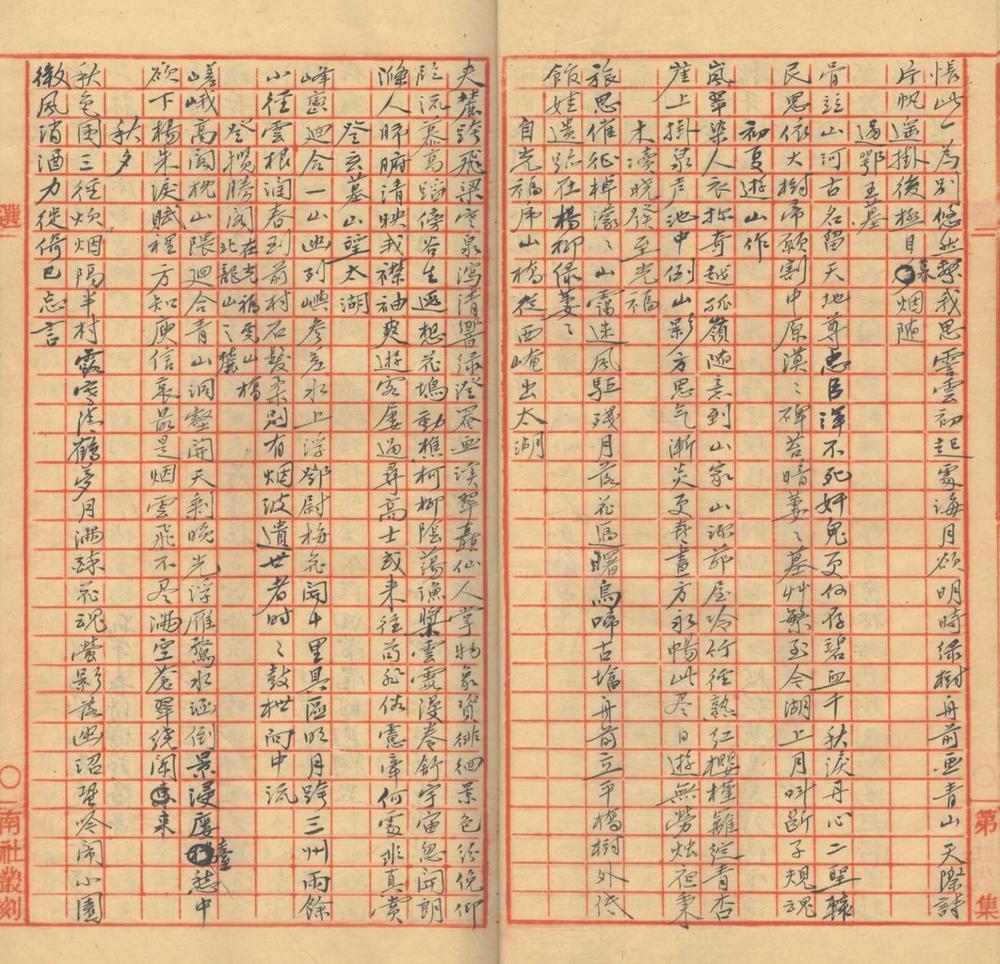 悵此一為別悠然繫我思雲雲初起處海月欲明時綠樹舟前画青山天際詩
片帆遥掛後極目暮烟随
過鄂王墓
骨立山河古名留天地尊忠臣渾不死奸鬼更何存碧血千秋淚丹心二聖轅
民思依大樹帝願割中原漠漠碑苔暗萋萋墓艸繁至今湖上月叫斷子規魂
初夏遊山作
嵐翠染人衣探奇越孤嶺随意到山家山深茆屋冷竹徑熟仁櫻槿籬綻青杏
崖上掛泉声池中倒山影方思气漸炎更喜晝方永暢此尽日遊無勞燭夜秉
木瀆晚發至光福
旅思催征棹濛濛山靄迷風駆残月落花过曙烏啼古墖舟前立平橋樹外低
館娃遺跡在楊柳緑萋萋
自光福虎山橋從西崦出太湖
夫麓跨飛梁寒泉瀉清響緑澄罨画溪翠矗仙人掌物象資徘徊景色紛俛仰
臨流慕高蹤傍谷生遐想花塢動樵柯柳陰蕩漁槳雲霞漫卷舒宇宙忽開朗
滌人肺腑清映我襟袖爽遊客屢過尋高士或来往苟非俗慮牽何處非真賞
登玄墓山望太湖
峰巒迴合一山幽列嶼参差水上浮鄧尉梅花開十里具區明月跨三州雨餘
小徑雲根润春到前村石髮柔別有烟波遺世者时时鼓枻向中流
登攬勝阁在光福虎山橋北龍山之麓
嵯峨高阁枕山隈迴合青山洞壑開天剩晚光浮雁鶩水涵倒景浸楼臺愁中
欲下楊朱淚賦裡方知庾信哀最是烟雲飛不尽满空蒼翠绕闌来
秋夕
秋色围三徑炊烟隔半村露寒清鶴夢月满疎花魂螢影落幽砌蛩吟闹小園
微風消酒力徙倚已忘言
選
一
第　集
南社叢刻